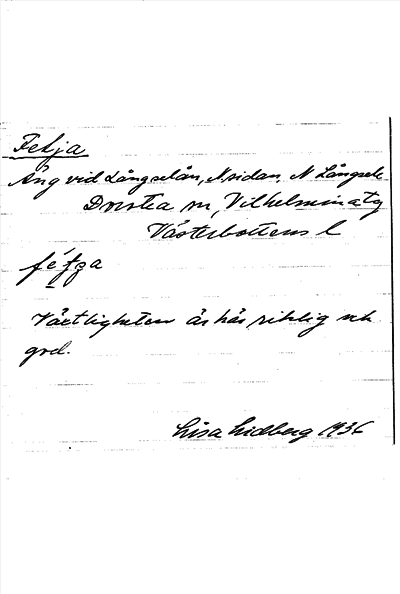 Fetja
Äng vid Långselån, N sidan, N Långsele
Dorotea sn, Vilhelmina tg
Västerbottens l
fétja
Växtligheten är här riklig och
god.
Lisa Lidberg 1936